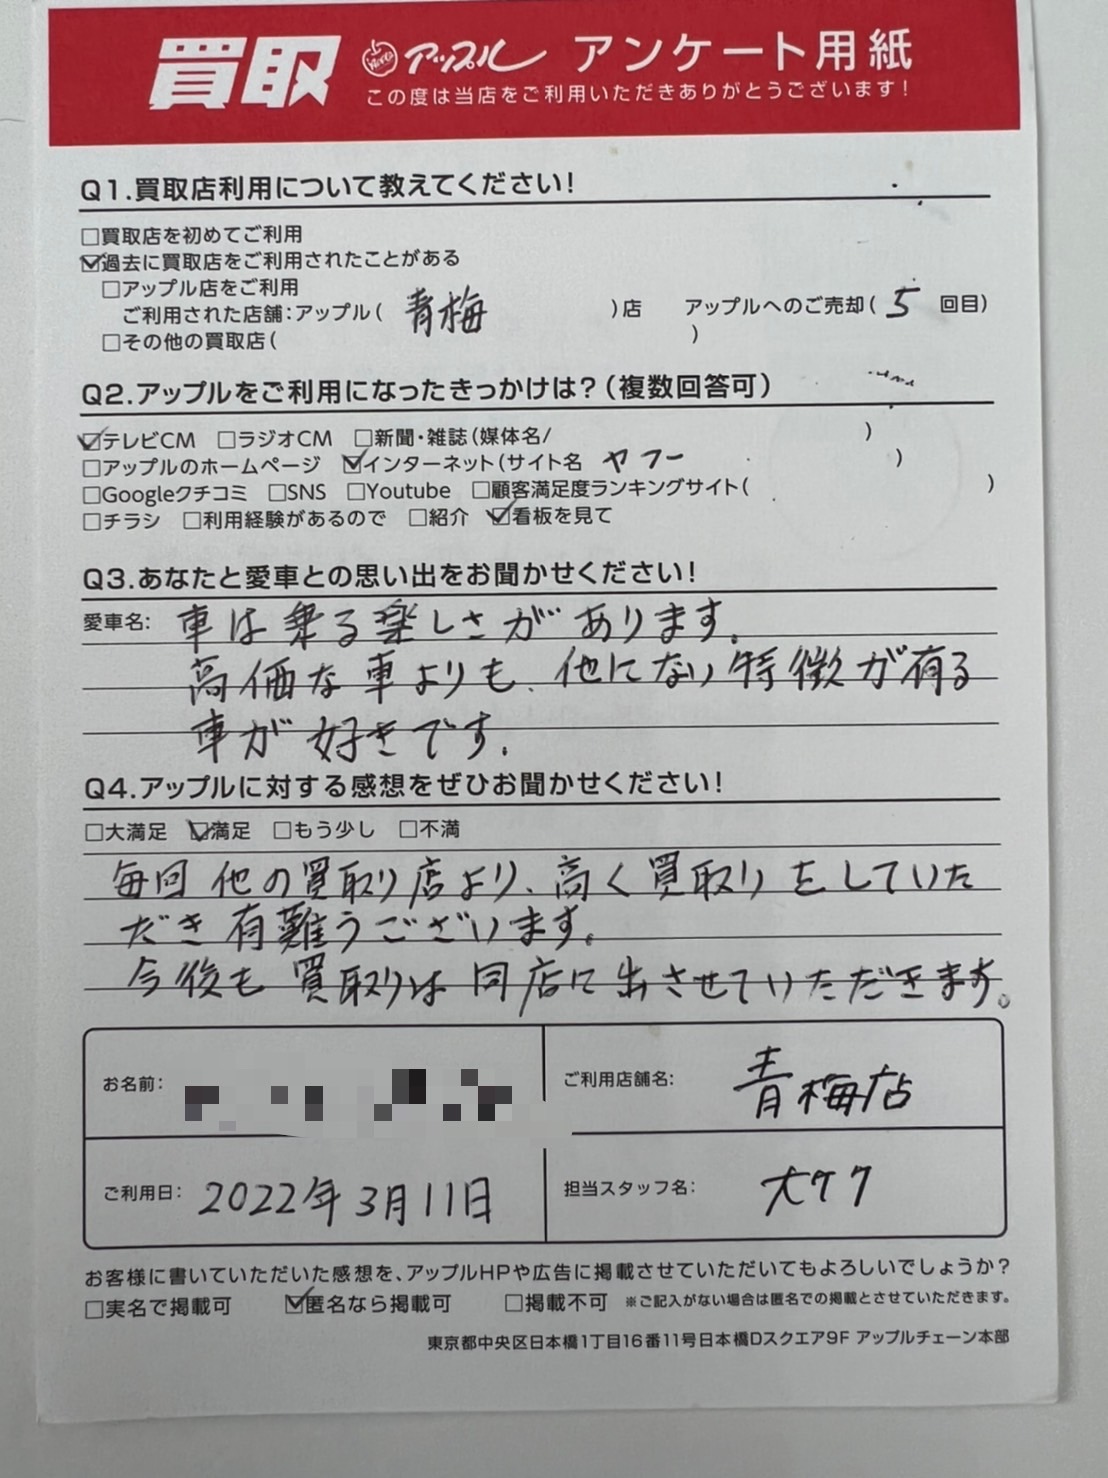 買取 アップル アンケート用紙
この度は当店をご利用いただきありがとうございます!
Q1.買取店利用について教えてください!
□買取店を初めてご利用
☑過去に買取店をご利用されたことがある
□アップル店をご利用
ご利用された店舗:アップル( 青梅 )店 アップルへのご売却( 5 回目)
□その他の買取店( )
Q2.アップルをご利用になったきっかけは?(複数回答可)
☑テレビCM □ラジオCM □新聞・雑誌(媒体名/ )
□アップルのホームページ ☑インターネット(サイト名 ヤフー )
□Googleクチコミ □SNS □Youtube □顧客満足度ランキングサイト( )
□チラシ □利用経験があるので □紹介 ☑看板を見て
Q3.あなたと愛車との思い出をお聞かせください!
愛車名: 車は乗る楽しさがあります。
高価な車よりも、他にない特徴が有る
車が好きです。
Q4.アップルに対する感想をぜひお聞かせください!
□大満足 ☑満足 □もう少し □不満
毎回他の買取り店より、高く買取りをしていた
だき有難うございます。
今後も買取りは同店に出させていただきます。
お名前: ご利用店舗名: 青梅店
ご利用日: 2022年3月11日 担当スタッフ名: 大ケク
お客様に書いていただいた感想を、アップルHPや広告に掲載させていただいてもよろしいでしょうか?
□実名で掲載可 ☑匿名なら掲載可 □掲載不可 ※ご記入がない場合は匿名での掲載とさせていただきます。
東京都中央区日本橋1丁目16番11号日本橋Dスクエア9F アップルチェーン本部